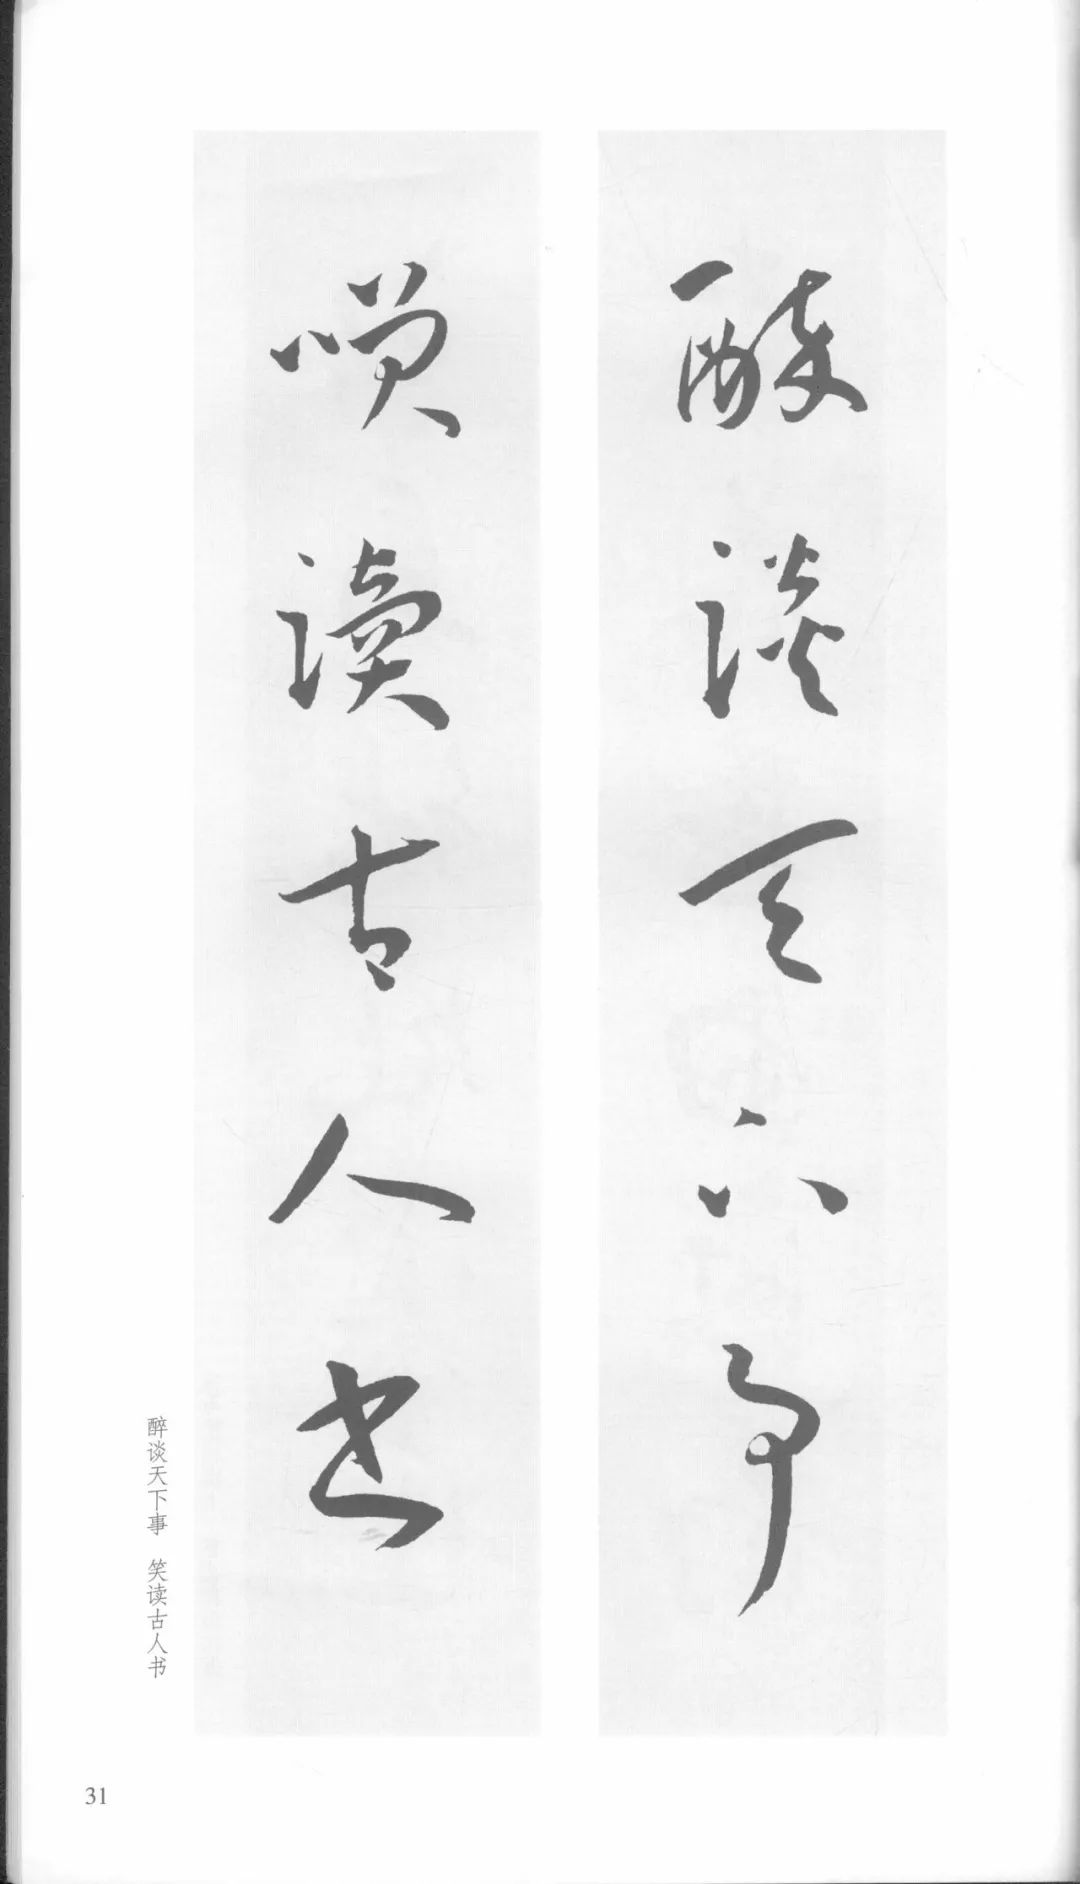 醉谈天下事
咲读古人书
醉谈天下事 笑读古人书
31